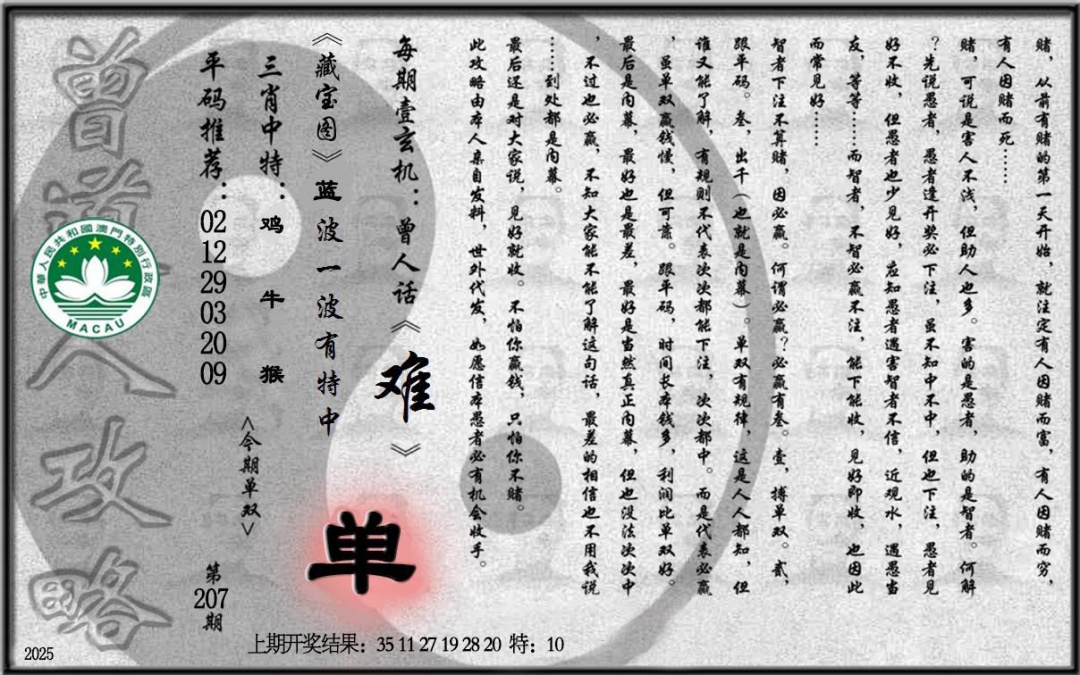 赌，从前有赌的第一天开始，就注定有人因赌而富，有人因赌而穷，
有人因赌而死……
赌，可说是害人不浅，但助人也多。害的是愚者，助的是智者。何解
？先说愚者，愚者逢开奖必下注，虽不知中不中，但也下注，愚者见
好不收，但愚者也少见好，应知愚者遇害智者不信，近观水，遇愚当
友，等等……而智者，不智必赢不注，能下能收，见好即收，也因此
而常见好……
智者下注不算赌，因必赢。何谓必赢？必赢有叁。壹，搏单双。贰，
跟单码。叁，出千（也就是内幕）。单双有规律，这是人人都知，但
谁又能了解，有规则不代表次次都能下注，次次都中。而是代表必赢
，虽单双赢钱慢，但可靠。跟单码，时间长本钱多，利润比单双好。
最后是内幕，最好也是最差，最好是当然真正内幕，但也没法次次中
，不过也必赢，不知大家能不能了解这句话，最差的相信也不用我说
……到处都是内幕。
最后还是对大家说，见好就收。不怕你赢钱，只怕你不赌。
此攻略由本人亲自发料，世外代发，如愿信本愚者必有机会收手。
每期壹玄机：曾人话《难》
《藏宝图》蓝波一波有特中
单
三肖中特：鸡 牛 猴
<今期单双>
平码推荐：02 12 29 03 20 09
第207期
曾道人攻略
中華人民共和國澳門特別行政區
MACAU
上期开奖结果：35 11 27 19 28 20 特：10
2025